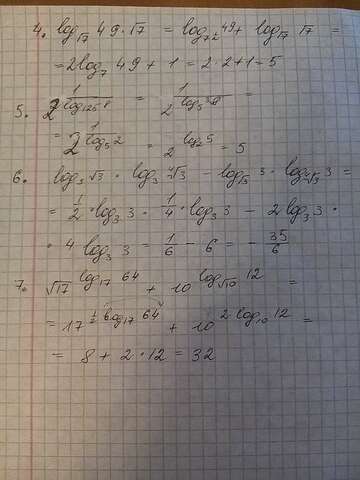 4. log_{√7} 49·√7 = log_{7^{1/2}} 49 + log_{√7} √7 =
= 2log_7 49 + 1 = 2·2+1 = 5
5. 2^{1/log_{125} 8} = 2^{1/log_5 2} =
= 2^{1/log_5 2} = 2^{log_2 5} = 5
6. log_3 √3 · log_3 ∜3 - log_{√3} 3 · log_{∜3} 3 =
= 1/2 · log_3 3 · 1/4 · log_3 3 - 2log_3 3 ·
· 4 log_3 3 = 1/6 - 6 = - 35/6
7. √17^{log_{17} 64} + 10^{log_{√10} 12} =
= 17^{1/2 log_{17} 64} + 10^{2 log_{10} 12} =
= 8 + 2 · 12 = 32